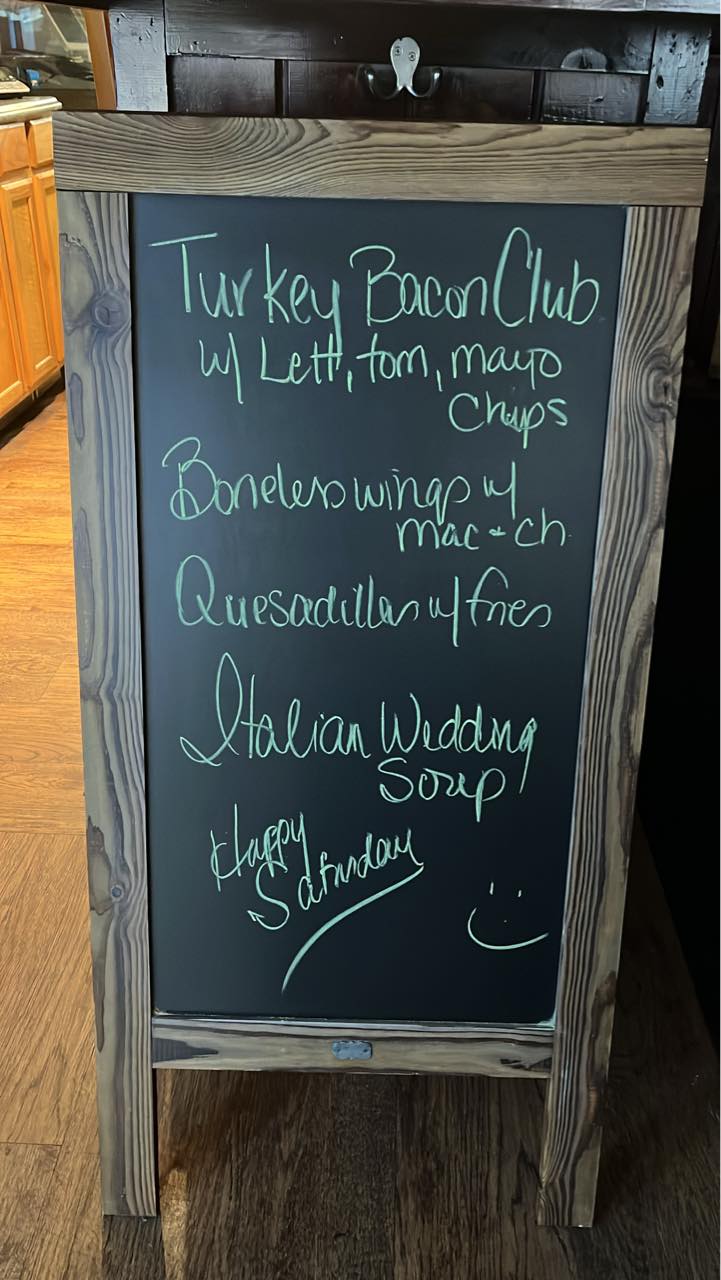 Turkey Bacon Club
w/ Lett, tom, mayo
Chips
Boneless wings w/
mac + ch
Quesadillas w/ fries
Italian Wedding
Soup
Happy
Saturday